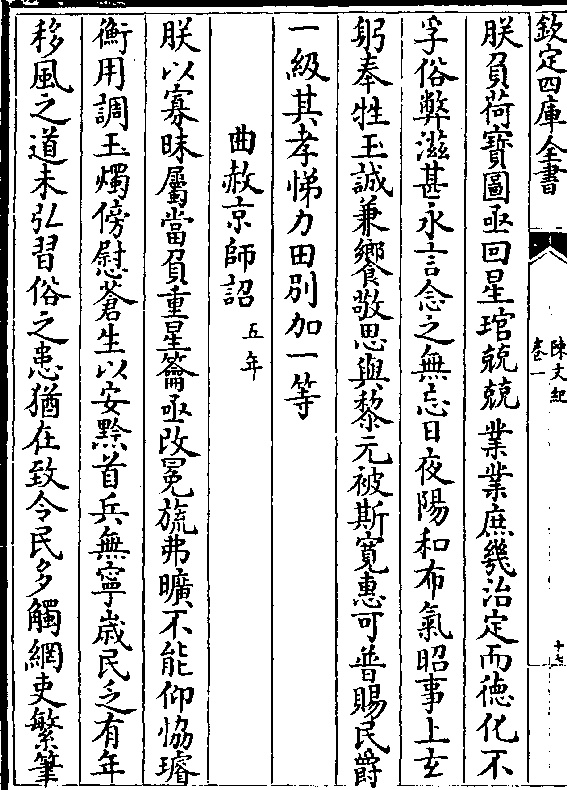 欽定四庫全書
陳文紀
卷一
十七
朕負荷寶圖亟回星琯兢兢業業庶幾治定而德化不
孚俗弊滋甚永言念之無忘日夜陽和布氣昭事上玄
躬奉牲玉誠兼饗敬思與黎元被斯寛惠可普賜民爵
一級其孝悌力田別加一等
曲赦京師詔五年
朕以寡昧屬當負重星籥亟改冕旒弗曠不能仰恊璿
衡用調玉燭傍慰蒼生以安黔首兵無寧嵗民乏有年
移風之道未弘習俗之患猶在致令民多觸網吏繁筆